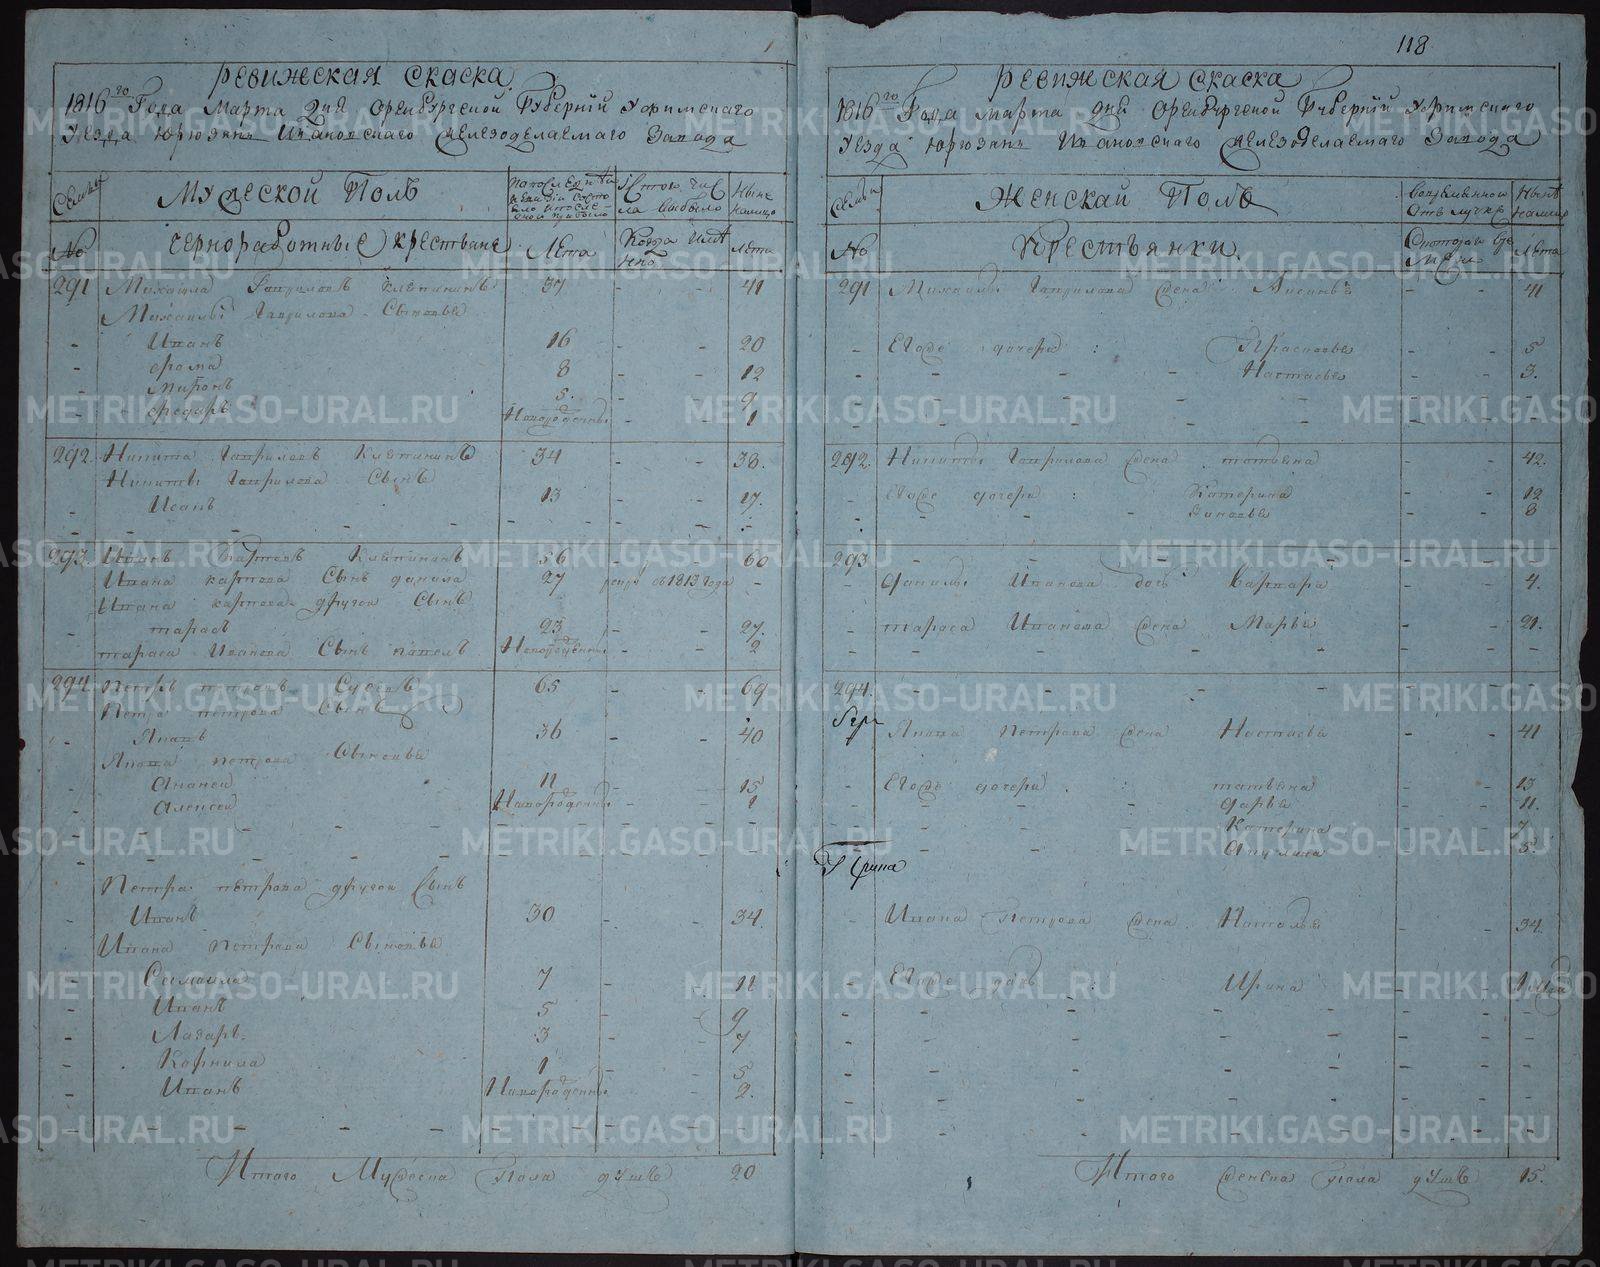 118
Ревижская скаска
1816го Года марта дня Оренбургской Губернии Уфимского
Уезда Юрюзань Ивановского железоделаемаго Завода
Семьи
Мужеской Полъ
Ныне налицо
№
чернорабочные крестьяне
Лета
Когда имянно
лета
291 Михайла Гаврилов Клепининъ 37 - - 41
Михайлы Гаврилова Сыновья
- Иванъ 16 - - 20
- Фома 8 - - 12
- Миронъ 5 - - 9
- Федоръ Новорожденный - 1
292. Никита Гавриловъ Клепининъ 34 - - 38.
Никиты Гаврилова Сынъ
- Исакъ 13 - - 17.
293. Иванъ Карповъ Клепининъ 56 - - 60
Ивана карпова Сынъ данила 27 1813 года -
Ивана карпова другой Сынъ
- тарасъ 23 - - 27.
тараса Иванова Сынъ павелъ Новорожденный - - 2
294 Петръ петровъ 65 - - 69
Петра петрова Сынъ
- Яковъ 36 - - 40
Якова петрова Сыновья
Ананей 11 - - 15
Алексей Новорожденный - - 1
Петра петрова другой Сынъ
- Иванъ 30 - - 34.
Ивана петрова Сыновья
- Самойла 7 - - 11
- Иванъ 5 - - 9
- Лазарь 3 - - 7
- Корнила 1 - - 5
- Иванъ Новорожденный - 2.
Итого Мужеска Пола душъ 20
Ревижская скаска
1816го Года марта дня Оренбургской Губернии Уфимского
Уезда Юрюзань Ивановского железоделаемаго Завода
Семьи
Женской Полъ
№
Крестьянки.
Лета
291 Михайлы Гаврилова жена - - 41
- Егоже дочери : Прасковья - - 5
- - - - Настасья - - 3.
292. Никиты Гаврилова жена татьяна - - 42.
- Егоже дочери : Катерина - - 12
Зиновья - - 8
293
данилы Иванова дочь варвара - - 4.
- тараса Иванова жена Марья - - 21.
294.
Якова петрова жена Настасья - - 41
- Егоже дочери : татьяна - - 13
дарья - - 11.
Катерина - - 7
Акулина - - 5.
Ирина
- Ивана Петрова жена Наталья - - 34.
- Егоже дочь : Ирина
Итого женска Пола душъ 15.
METRIKI.GASO-URAL.RU